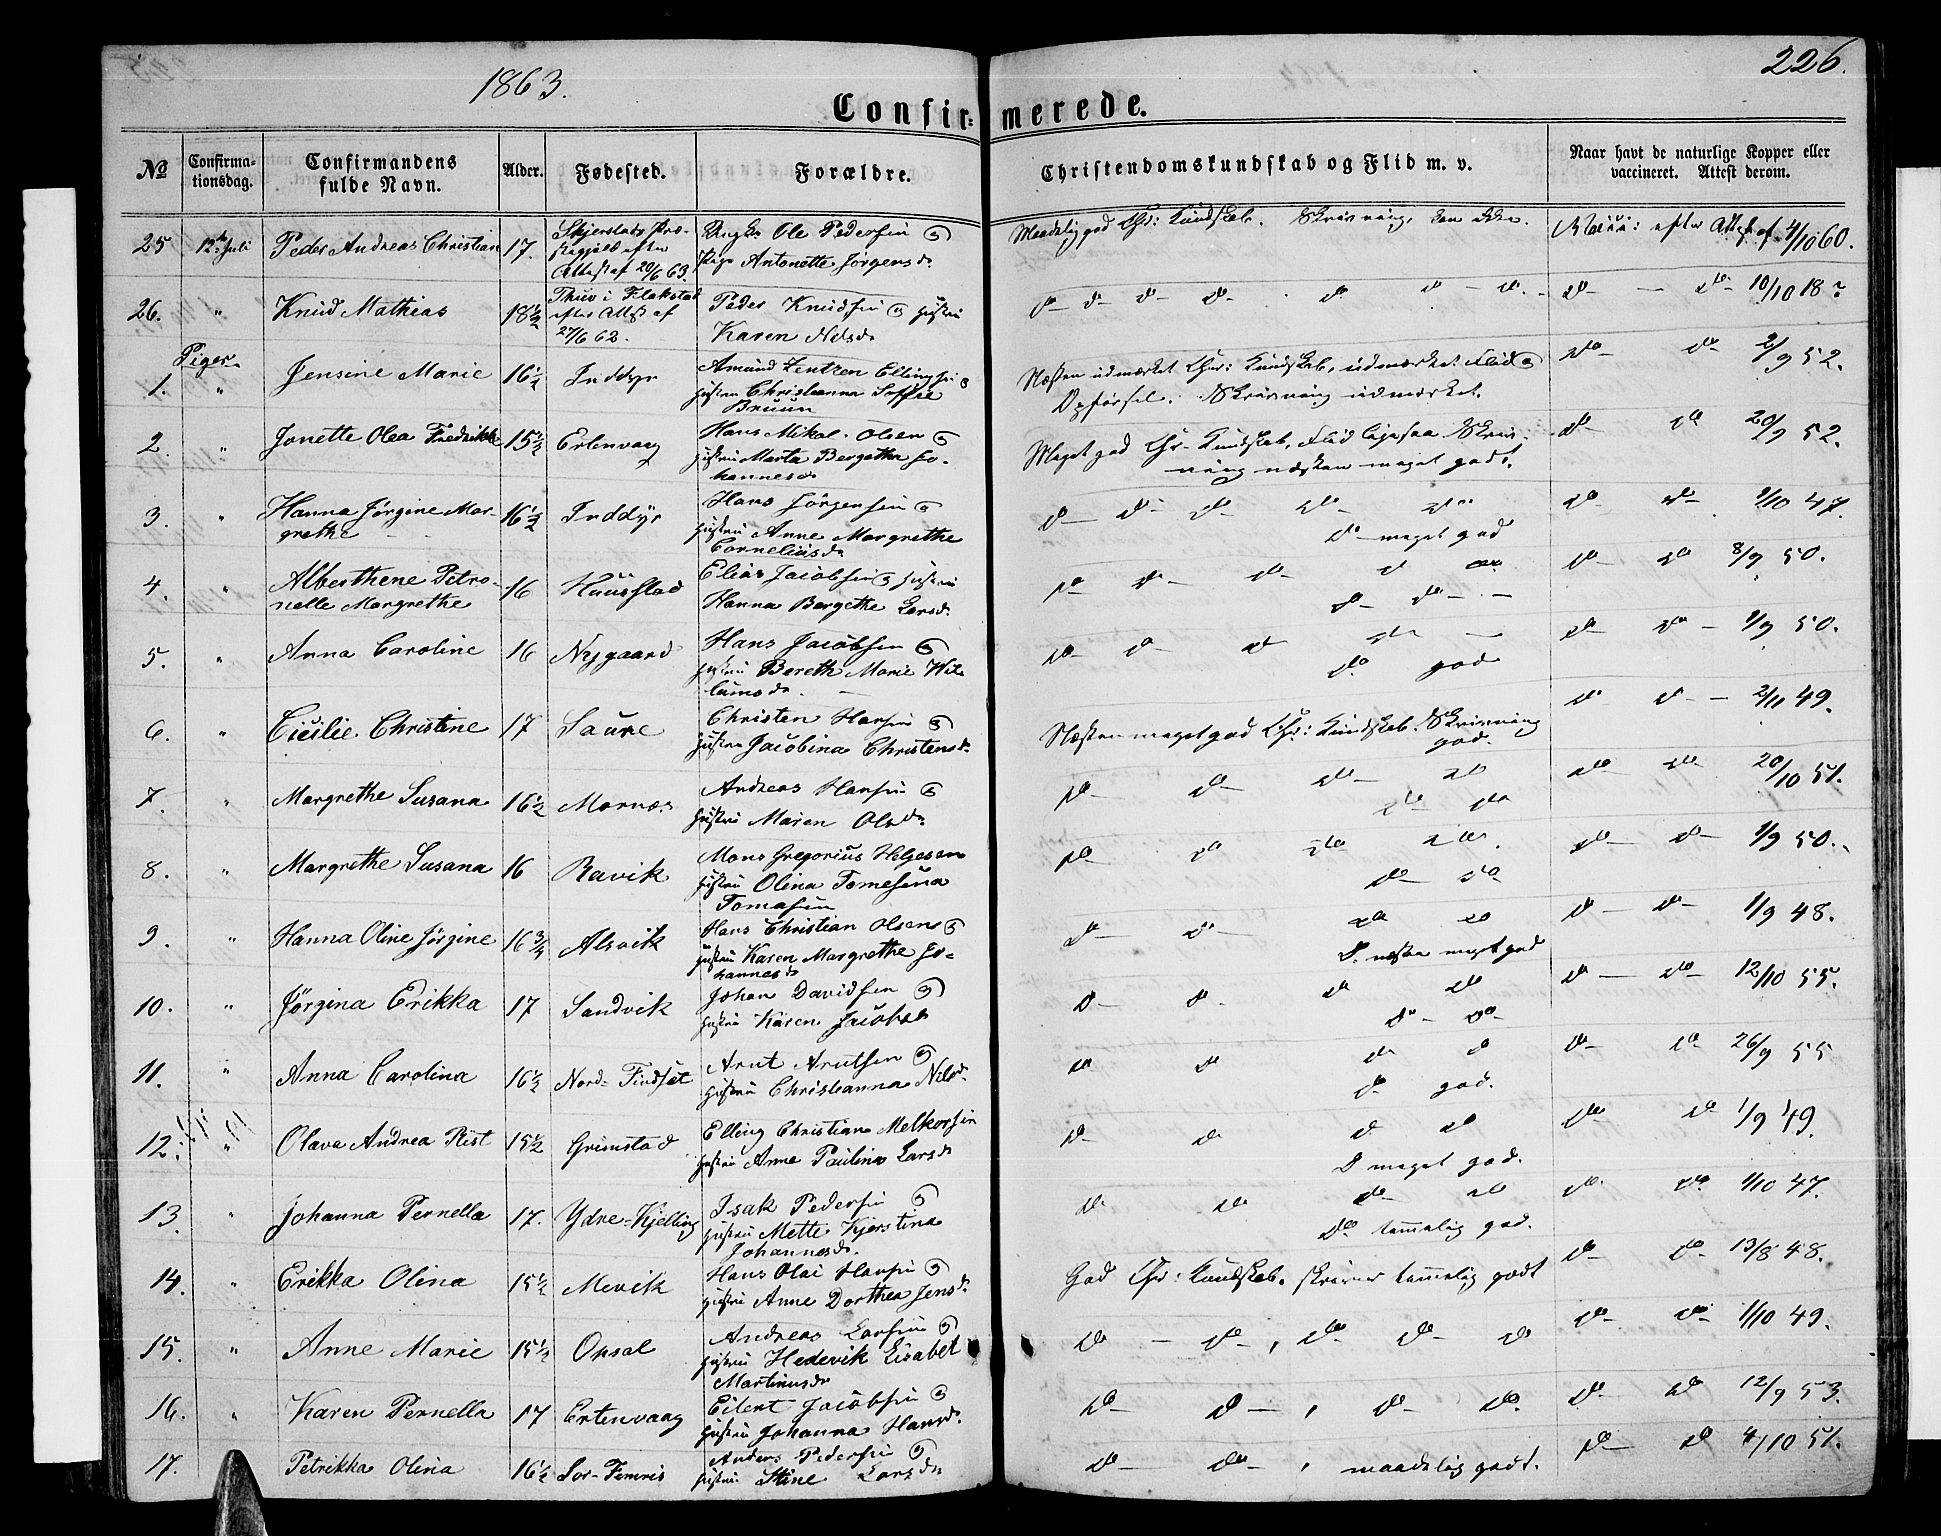 1863.
226.
Confirmerede.
No
Confirma-
tionsdag.
Confirmandens
fulde Navn.
Alder.
Fødested.
Forældre.
Christendomskundskab og Flid m. v.
Naar havt de naturlige Kopper eller
vaccineret. Attest derom.
25 12te Juli Peder Andreas Christian 17.
Skjerstads Præ-
stegjeld efter
Attest af 20/6 63.
Ole Pedersen og
Antonette Jørgensd.
Maadelig god Chr: Kundskab. Skrivning,
Vacci: efter Attest af 4/10 60.
26. " Knud Mathias 18 1/2
Thuv i Flakstad
efter Attest af
27/6 62.
Peder Knudsen og Hustru
Karen Nelsd.
do do do do do do do
do do 10/10 18?
Piger
1. " Jensine Marie 16 1/2 Inddyr
Amund Zentzen Ellingsen og
Hustru Christianna Soffie
Bruun
Næsten udmærket Chr: Kundskab, udmærket Flid og
Opførsel. Skrivning udmærket.
do do 2/9 52.
2. " Jonette Olea Fredrikke 15 1/2 Ertenvaag
Hans Mikal Olsen og
Hustru Marta Bergetha Jo-
hannesd.
Meget god Chr. Kundskab, Flid ligesaa. Skriv-
ning næsten meget godt.
do do 20/9 52.
3. " Hanna Jørgine Mar-
grethe 16 1/2 Inddyr
Hans Jørgensen og
Hustru Anne Margrethe
Corneliusd.
do do do do do
do meget god
do do 1/10 47.
4. " Alberthene Petro-
nelle Margrethe 16 Huusstad
Elias Jacobsen og Hustru
Hanna Bergethe Larsd.
do do do do do
do do
do do 8/9 50.
5. " Anna Caroline 16 Nygaard
Hans Jacobsen og
Hustru Bereth Marie Wil-
lumsd.
do do do do
do god
do do 1/9 50.
6. " Cicilie Christine 17 Saure
Christen Hansen og
Hustru Jacobina Christensd.
Næsten meget god Chr: Kundskab. Skrivning
god.
do do 2/11 49.
7. " Margrethe Susana 16 1/2 Mornæs
Andreas Hansen og
Hustru Maren Olsd.
do do do do
do do
do do 20/10 51.
8. " Margrethe Susana 16 Ravik
Mons Gregorius Helgesen
Hustru Olina Tomesina
Tomasen
do do do do
do do
do do 1/9 50.
9. " Hanna Oline Jørgine 16 3/4 Alsvik
Hans Christian Olsen og
Hustru Karen Margrethe Jo-
hannesd.
do do do do
do næsten meget god
do do 1/9 48.
10. " Jørgina Erikka 17 Sandvik
Johan Davidsen og
Hustru Karen Jacobsd.
do do do do
do do
do do 12/10 55.
11. " Anna Carolina 16 1/2 Nord-Findset
Arnt Arntsen og
Hustru Christianna Nilsd.
do do do do
do god.
do do 26/9 55
12. " Olava Andrea Rist 15 1/2 Grimstad
Elling Christian Melkorsen
Hustru Anne Paulina Larsd.
do do do do
do meget god.
do do 1/9 49.
13. " Johanna Pernella 17. Ydre-Kjelling
Isak Pedersen og
Hustru Mette Kjerstina
Johannesd.
do do do do
do temmelig god.
do do 1/10 47.
14. " Erikka Olina 15 1/2 Mevik
Hans Olai Hansen og
Hustru Anne Dorthea Jensd.
God Chr: Kundskab. skriver temmelig godt
do do 13/8 48.
15. " Anne Marie 15 1/2 Opsal
Andreas Larsen og
Hustru Hedevik Lisabet
Martinusd.
do do, do do do
do do 1/10 49.
16. " Karen Pernella 17 Ertenvaag
Eilert Jacobsen og
Hustru Johanna Hansd.
do do, do do
do do 12/9 53.
17. Petrikka Olina 16 1/2 Sør-Femris
Anders Pedersen og
Hustru Stine Larsd.
do do, maadelig godt.
do do 4/10 51.